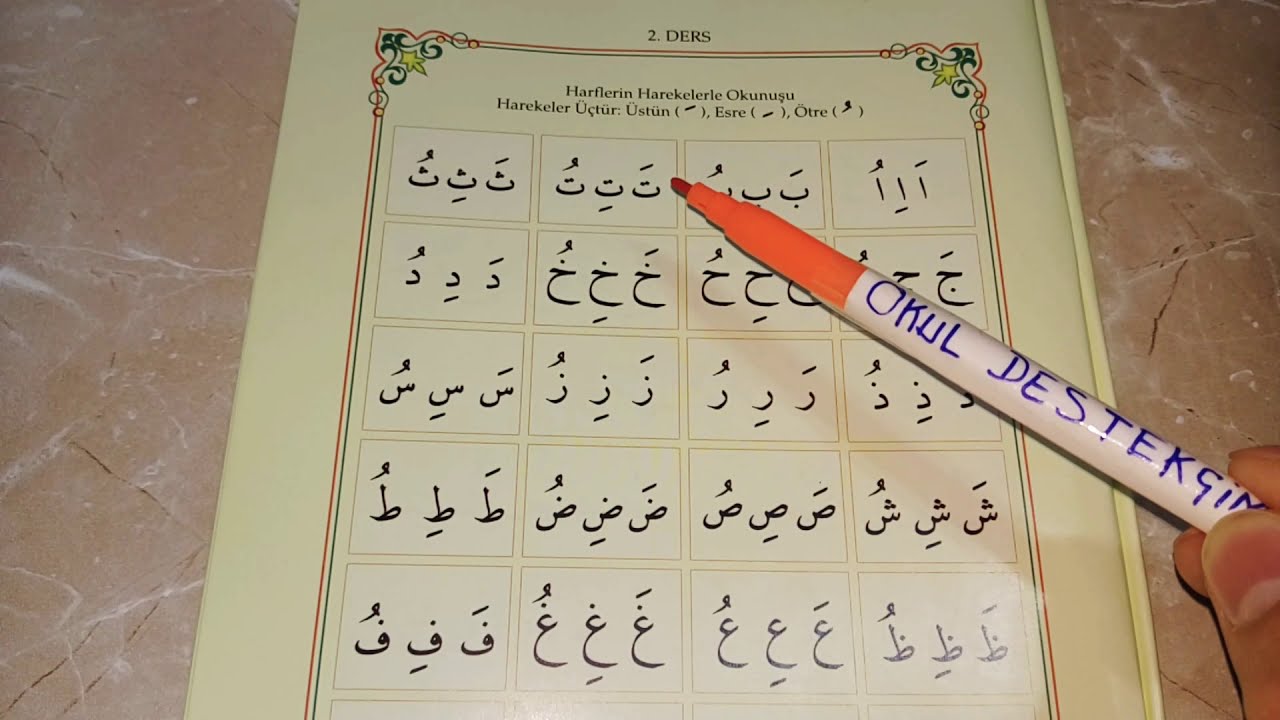 2. DERS
Harflerin Harekelerle Okunuşu
Harekeler Üçtür: Üstün ( َ ), Esre ( ِ ), Ötre ( ُ )
اَ اِ اُ
بَ بِ بُ
تَ تِ تُ
ثَ ثِ ثُ
جَ جِ
حَ حِ حُ
خَ خِ خُ
دَ دِ دُ
ذَ ذِ ذُ
رَ رِ رُ
زَ زِ زُ
سَ سِ سُ
شَ شِ شُ
صَ صِ صُ
ضَ ضِ ضُ
طَ طِ طُ
ظَ ظِ ظُ
عَ عِ عُ
غَ غِ غُ
فَ فِ فُ
OKUL DESTEKÇİM